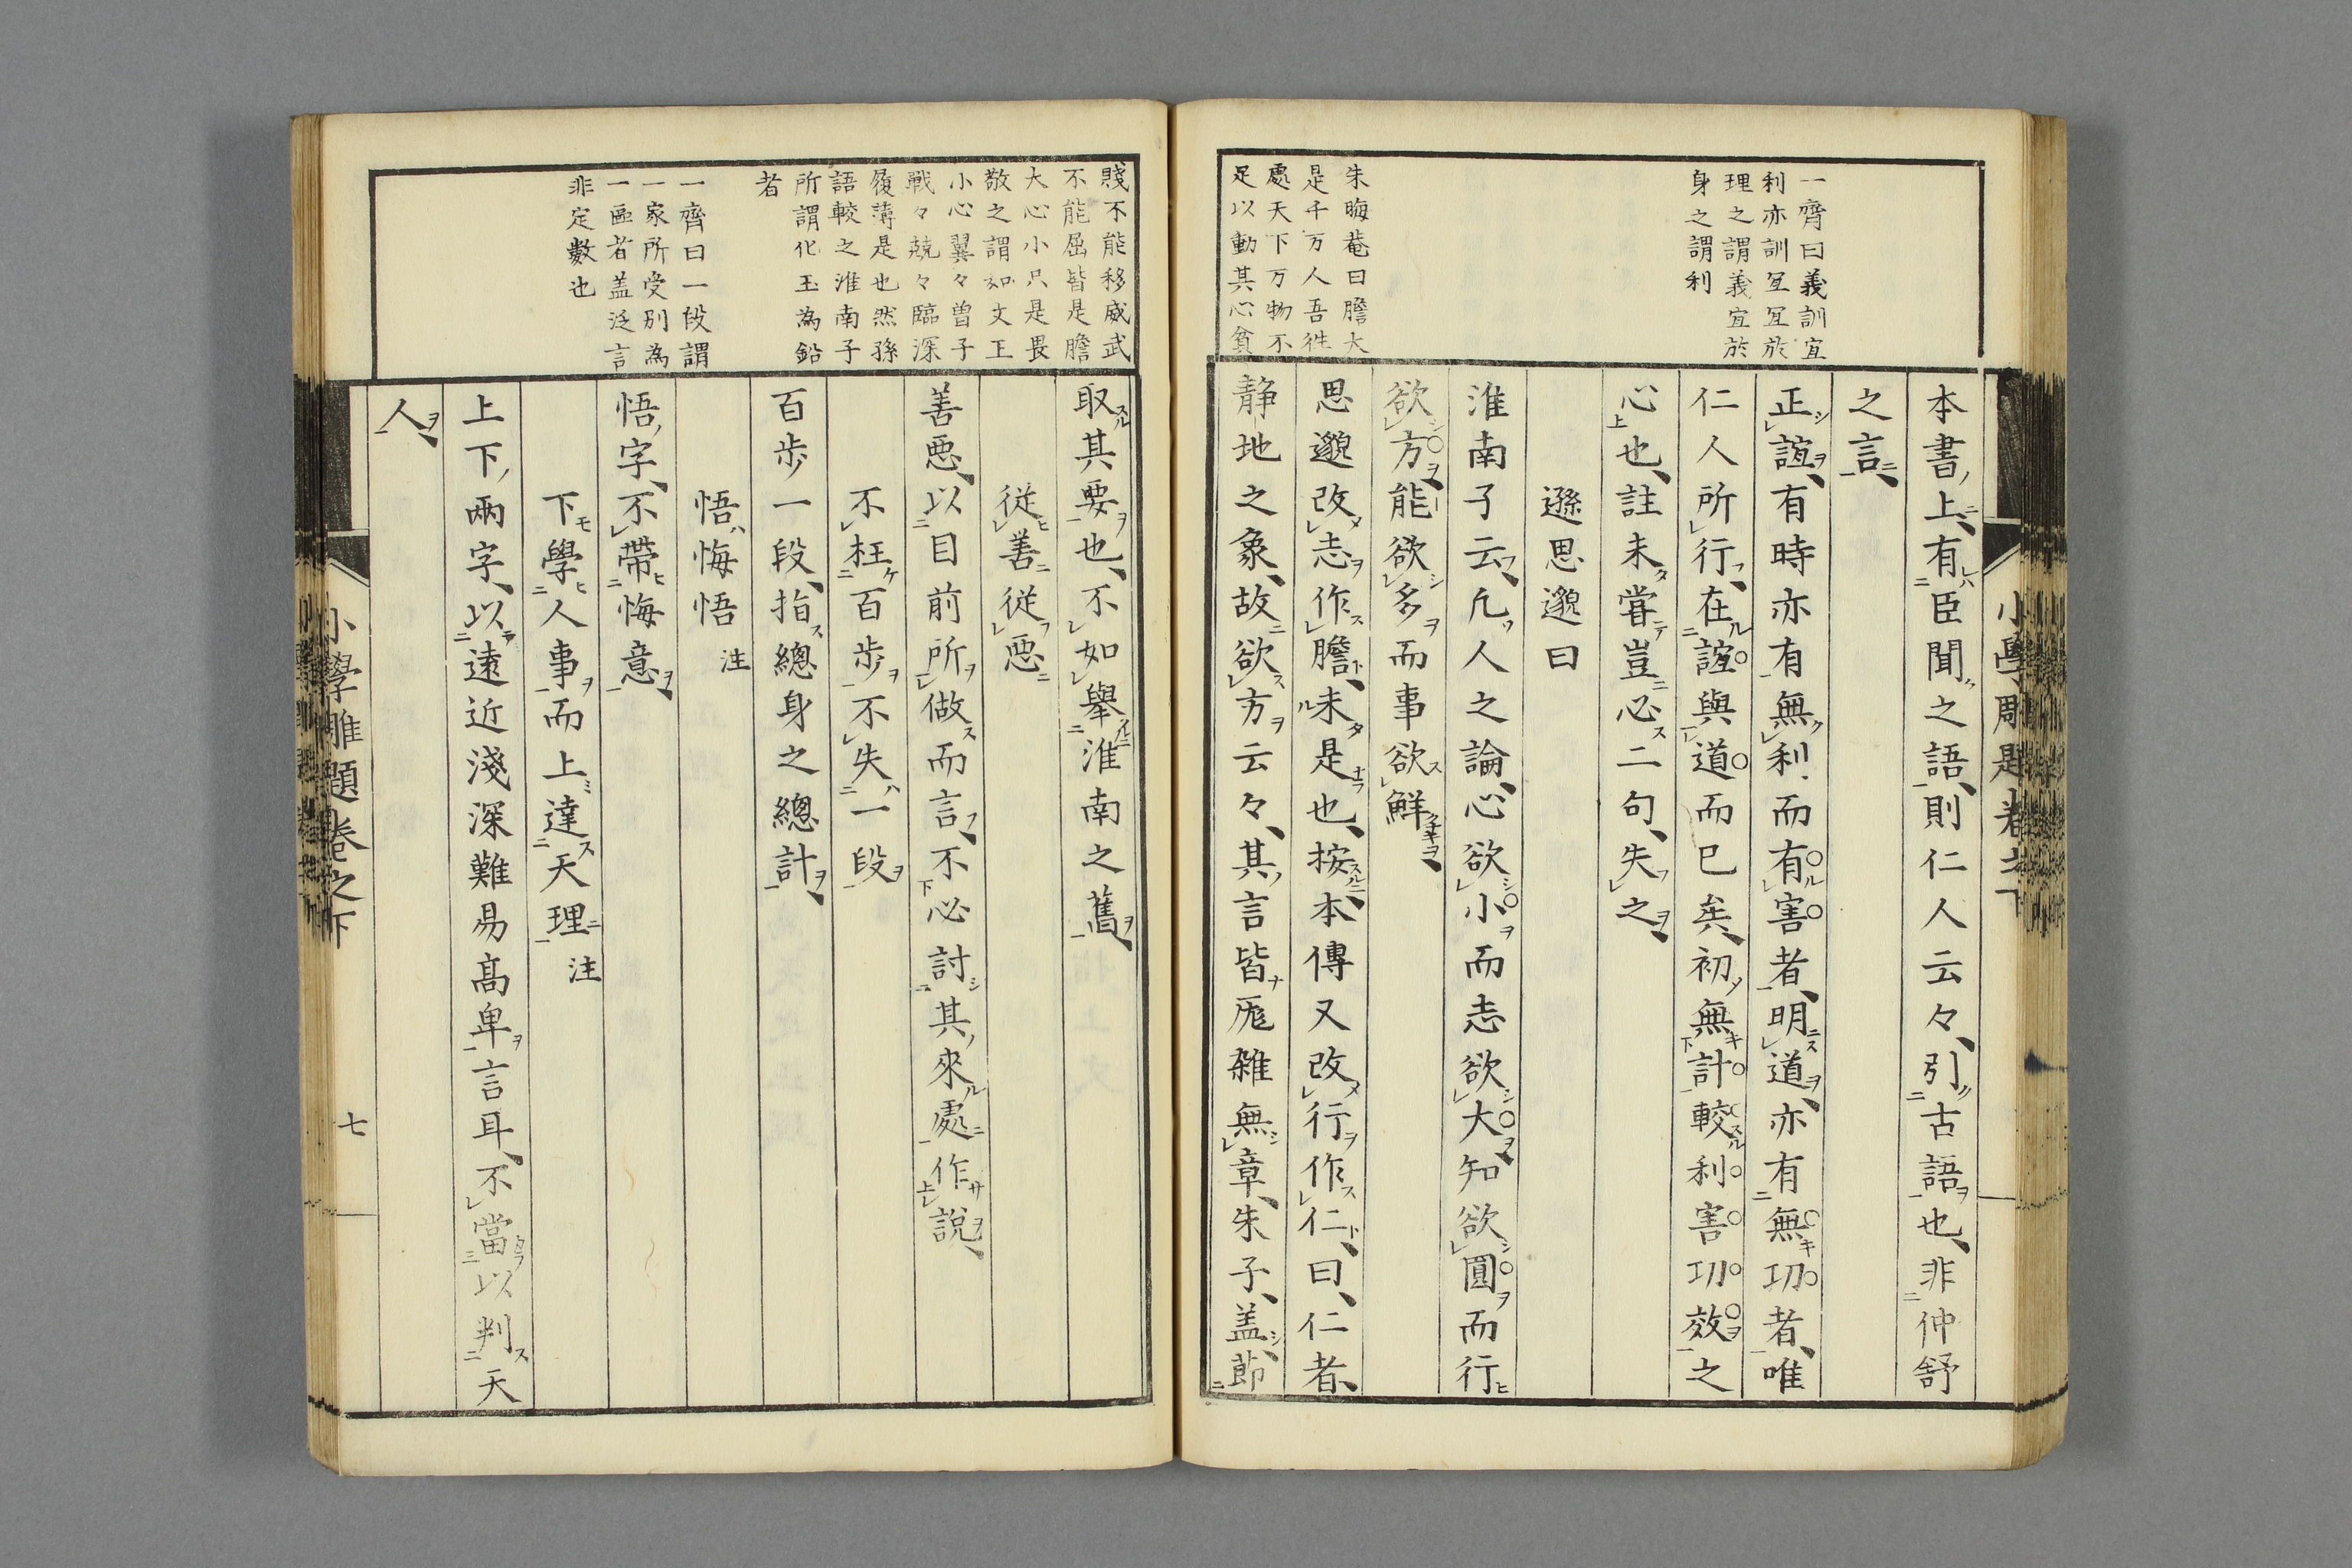 一齊曰義訓宜
利亦訓宜宜於
理之謂義宜於
身之謂利
朱晦菴曰膽大
是千万人吾徃
處天下万物不
足以動其心貧
本書上有臣聞之語則仁人云々引古語也非仲舒
之言
正誼有時亦有無利而有害者明道亦有無功者唯
仁人所行在誼與道而已矣初無計較利害功效之
心也註未甞豈必二句失之
遜思邈曰
淮南子云凢人之論心欲小而志欲大知欲圓而行
欲方能欲多而事欲鮮
思邈改志作膽未是也按本傳又改行作仁曰仁者
静地之象故欲方云々其言皆厖雑無章朱子盖節
賤不能移威武
不能屈皆是膽
大心小只是畏
敬之謂如文王
小心翼々曽子
戰々兢々臨深
履薄是也然孫
語較之淮南子
所謂化玉為鉛
者
一齊曰一段謂
一家所受別為
一區者盖泛言
非定數也
取其要也不如舉淮南之舊
従善従惡
善惡以目前所做而言不必討其來處作說
不枉百歩不失一段
百歩一段指總身之總計
悟悔悟 注
悟字不帶悔意
下學人事而上達天理 注
上下兩字以遠近淺深難易髙卑言耳不當以判天
人
小學雕題巻之下
七